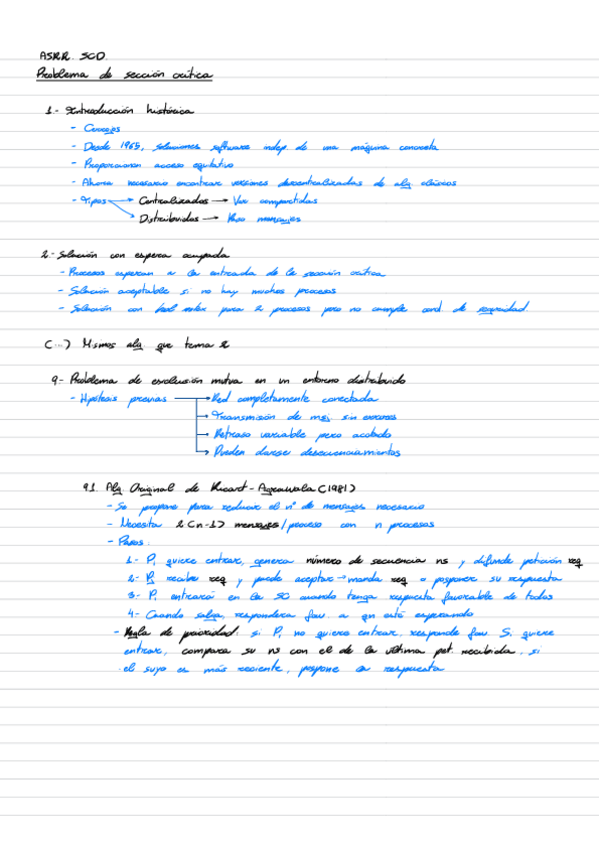 ASRR. SCD.
Problema de sección crítica
1.- Introducción histórica
- Cerrojos
- Desde 1965, soluciones software indep. de una máquina concreta
- Proporcionan acceso equitativo
- Ahora necesario encontrar versiones descentralizadas de alg. clásicos
- Tipos → Centralizados → Var compartidas
→ Distribuidos → Paso mensajes
2.- Solución con espera ocupada
- Procesos esperan a la entrada de la sección crítica
- Solución aceptable si no hay muchos procesos
- Solución con para 2 procesos pero no cumple cond. de seguridad.
(...) Mismos alg. que tema 2
9- Problema de exclusión mutua en un entorno distribuido
- Hipótesis previas → Red completamente conectada
→ Transmisión de msj. sin errores
→ Retraso variable pero acotado
→ Pueden darse desecuenciamientos
9.1. Alg. Original de Ricart-Agrawala (1981)
- Se propone para reducir el nº de mensajes necesario
- Necesita 2(n-1) mensajes/proceso con n procesos
- Pasos:
1- Pi quiere entrar, genera número de secuencia ns y difunde petición req
2- Pj recibe req y puede aceptar → manda req o posponer su respuesta
3- Pi entrará en la SC cuando tenga respuesta favorable de todos
4- Cuando salga responderá fav. a qn esté esperando
- Regla de prioridad: si Pi no quiere entrar, responde fav. Si quiere
entrar, compara su ns con el de la última pet. recibida, si
el suyo es más reciente, pospone la respuesta